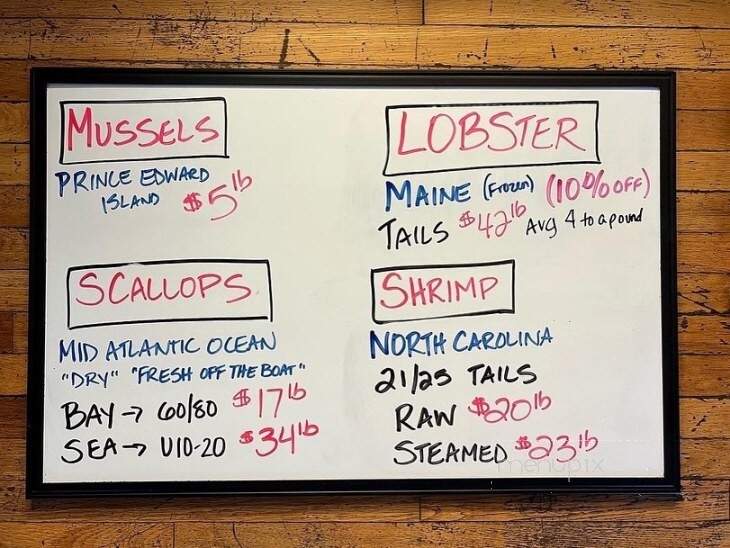 MUSSELS
PRINCE EDWARD
ISLAND $5 lb
LOBSTER
MAINE (Frozen) (10% OFF)
TAILS $42 lb Avg 4 to a pound
SCALLOPS
MID ATLANTIC OCEAN
"DRY" "FRESH OFF THE BOAT"
BAY → 60/80 $17 lb
SEA → U10-20 $34 lb
SHRIMP
NORTH CAROLINA
21/25 TAILS
RAW $20 lb
STEAMED $23 lb
menupix